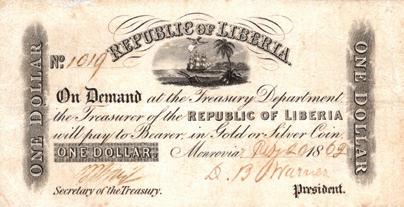 REPUBLIC OF LIBERIA.
No. 1019
ONE DOLLAR
ONE DOLLAR
On Demand at the Treasury Department
the Treasurer of the REPUBLIC OF LIBERIA
will pay to Bearer, in Gold or Silver Coin,
ONE DOLLAR. Monrovia 20 1862
D. B. Warner
Secretary of the Treasury. President.